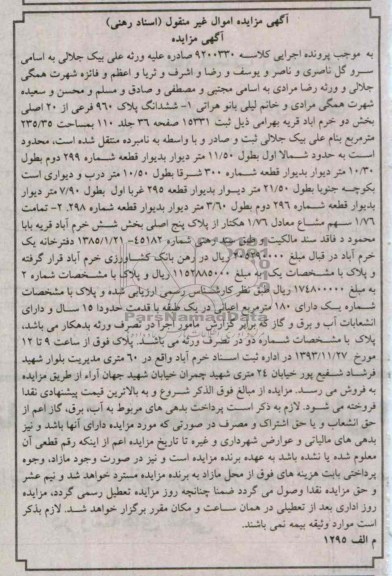 آگهی مزایده اموال غیر منقول (اسناد رهنی)
آگهی مزایده
به موجب پرونده اجرایی کلاسه ۹۲۰۰۳۳۰ صادره علیه ورثه علی بیک جلالی به اسامی
سرو گل ناصری و ناصر و یوسف و رضا و اشرف و ثریا و اعظم و فائزه شهرت همگی
جلالی و ورثه رضا مرادی به اسامی مجتبی و مصطفی و صادق و مسلم و محسن و سعیده
شهرت همگی مرادی و خانم لیلی بانو هراتی ۱- ششدانگ پلاک ۹۶۰ فرعی از ۲۰ اصلی
بخش دو خرم اباد قریه بهرامی ذیل ثبت ۱۵۳۳۱ صفحه ۳۶ جلد ۱۱۰ بمساحت ۲۳۵/۳۵
مترمربع بنام علی بیک جلالی ثبت و صادر و با واسطه به نامبرده منتقل شده است، محدود
است به حدود شمالا اول بطول ۱۱/۵۰ متر دیوار بدیوار قطعه شماره ۲۹۹ دوم بطول
۱۰/۳۰ متر دیوار بدیوار قطعه شماره ۳۰۰ شرقا بطول ۱۰/۵۰ متر درب و دیواری است
بکوچه جنوبا بطول ۲۱/۵۰ متر دیوار بدیوار قطعه ۲۹۵ غربا اول بطول ۷/۹۰ متر دیوار
بدیوار قطعه شماره ۲۹۶ دوم بطول ۳/۶۰ متر دیوار بدیوار قطعه شماره ۲۹۸. ۲- تمامت
۱/۷۶ سهم مشاع معادل ۱/۷۶ هکتار از پلاک پنج اصلی بخش شش خرم آباد قریه بابا
محمود د فاقد سند مالکیت و طبق سند رهنی شماره ۴۵۱۸۲- ۱۳۸۵/۱/۲۱ دفترخانه یک
خرم آباد در قبال مبلغ ریال در رهن بانک کشاورزی خرم آباد قرار گرفته
و پلاک با مشخصات یک به مبلغ ۱۱۵۲۸۸۵۰۰۰ ریال و پلاک با مشخصات شماره ۲
به مبلغ ۱۷۴۸۰۰۰۰۰ ریال طبق نظر کارشناس رسمی ارزیابی شده و پلاک با مشخصات
شماره یک دارای ۱۸۰ متر مربع اعیانی در یک طبقه با قدمت حدودا ۱۵ سال و دارای
انشعابات آب و برق و گاز که برابر گزارش مامور اجرا در تصرف ورثه بدهکار می باشد،
پلاک با مشخصات شماره دو در تصرف ورثه می باشد. پلاک فوق از ساعت ۹ تا ۱۲
مورخ ۱۳۹۳/۱۱/۲۷ در اداره ثبت اسناد خرم آباد واقع در ۶۰ متری مدیریت بلوار شهید
فرشاد شفیع پور خیابان ۲۴ متری شهید چمران خیابان شهید جهان آراء از طریق مزایده
به فروش می رسد. مزایده از مبالغ فوق الذکر شروع و به بالاترین قیمت پیشنهادی نقدا
فروخته می شود. لازم به ذکر است پرداخت بدهی های مربوط به آب، برق، گاز اعم از
حق انشعاب و یا حق اشتراک و مصرف در صورتی که مورد مزایده دارای آنها باشد و نیز
بدهی های مالیاتی و عوارض شهرداری و غیره تا تاریخ مزایده اعم از اینکه رقم قطعی آن
معلوم شده یا نشده باشد به عهده برنده مزایده است و نیز در صورت وجود مازاد، وجوه
پرداختی بابت هزینه های فوق از محل مازاد به برنده مزایده مسترد خواهد شد و نیم عشر
و حق مزایده نقدا وصول می گردد ضمنا چنانچه روز مزایده تعطیل رسمی گردد، مزایده
روز اداری بعد از تعطیلی در همان ساعت و مکان مقرر برگزار خواهد شد. لازم بذکر
است موارد وثیقه بیمه نمی باشند.
م الف ۱۲۹۵
ParsNamadData